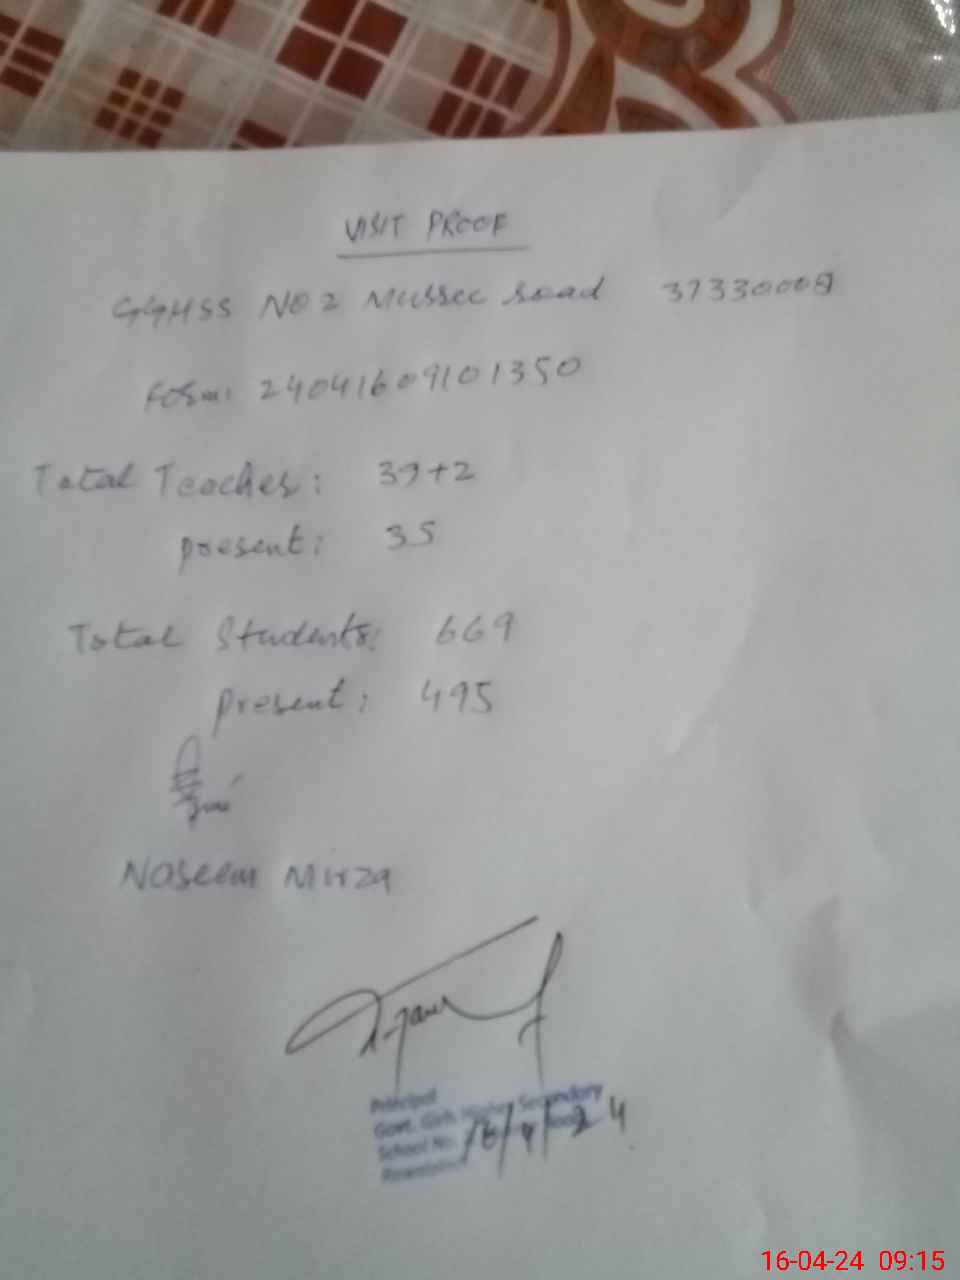 VISIT PROOF
GGHSS NO 2 Mussee road 37330009
Form: 24041609101350
Total Teacher: 39+2
present: 35
Total Students: 669
present: 495
Naseem Mirza
Principal
Govt. Girls Higher Secondary
School No.
16/4/24
16-04-24 09:15